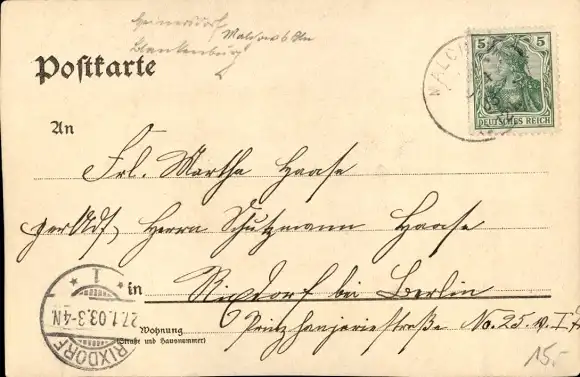 Heinersdorf
Malchow b Bln
Blankenburg
Postkarte
5 5
DEUTSCHES REICH
MALCHOW
An
Frl. Martha Haase
per Adr. Herrn Schutzmann Haase
in Rixdorf bei Berlin
Wohnung
(Straße und Hausnummer)
Prinz Handjeriestraße No. 25. v. I
* 1 *
27.1.03.3-4N.
RIXDORF
15.-